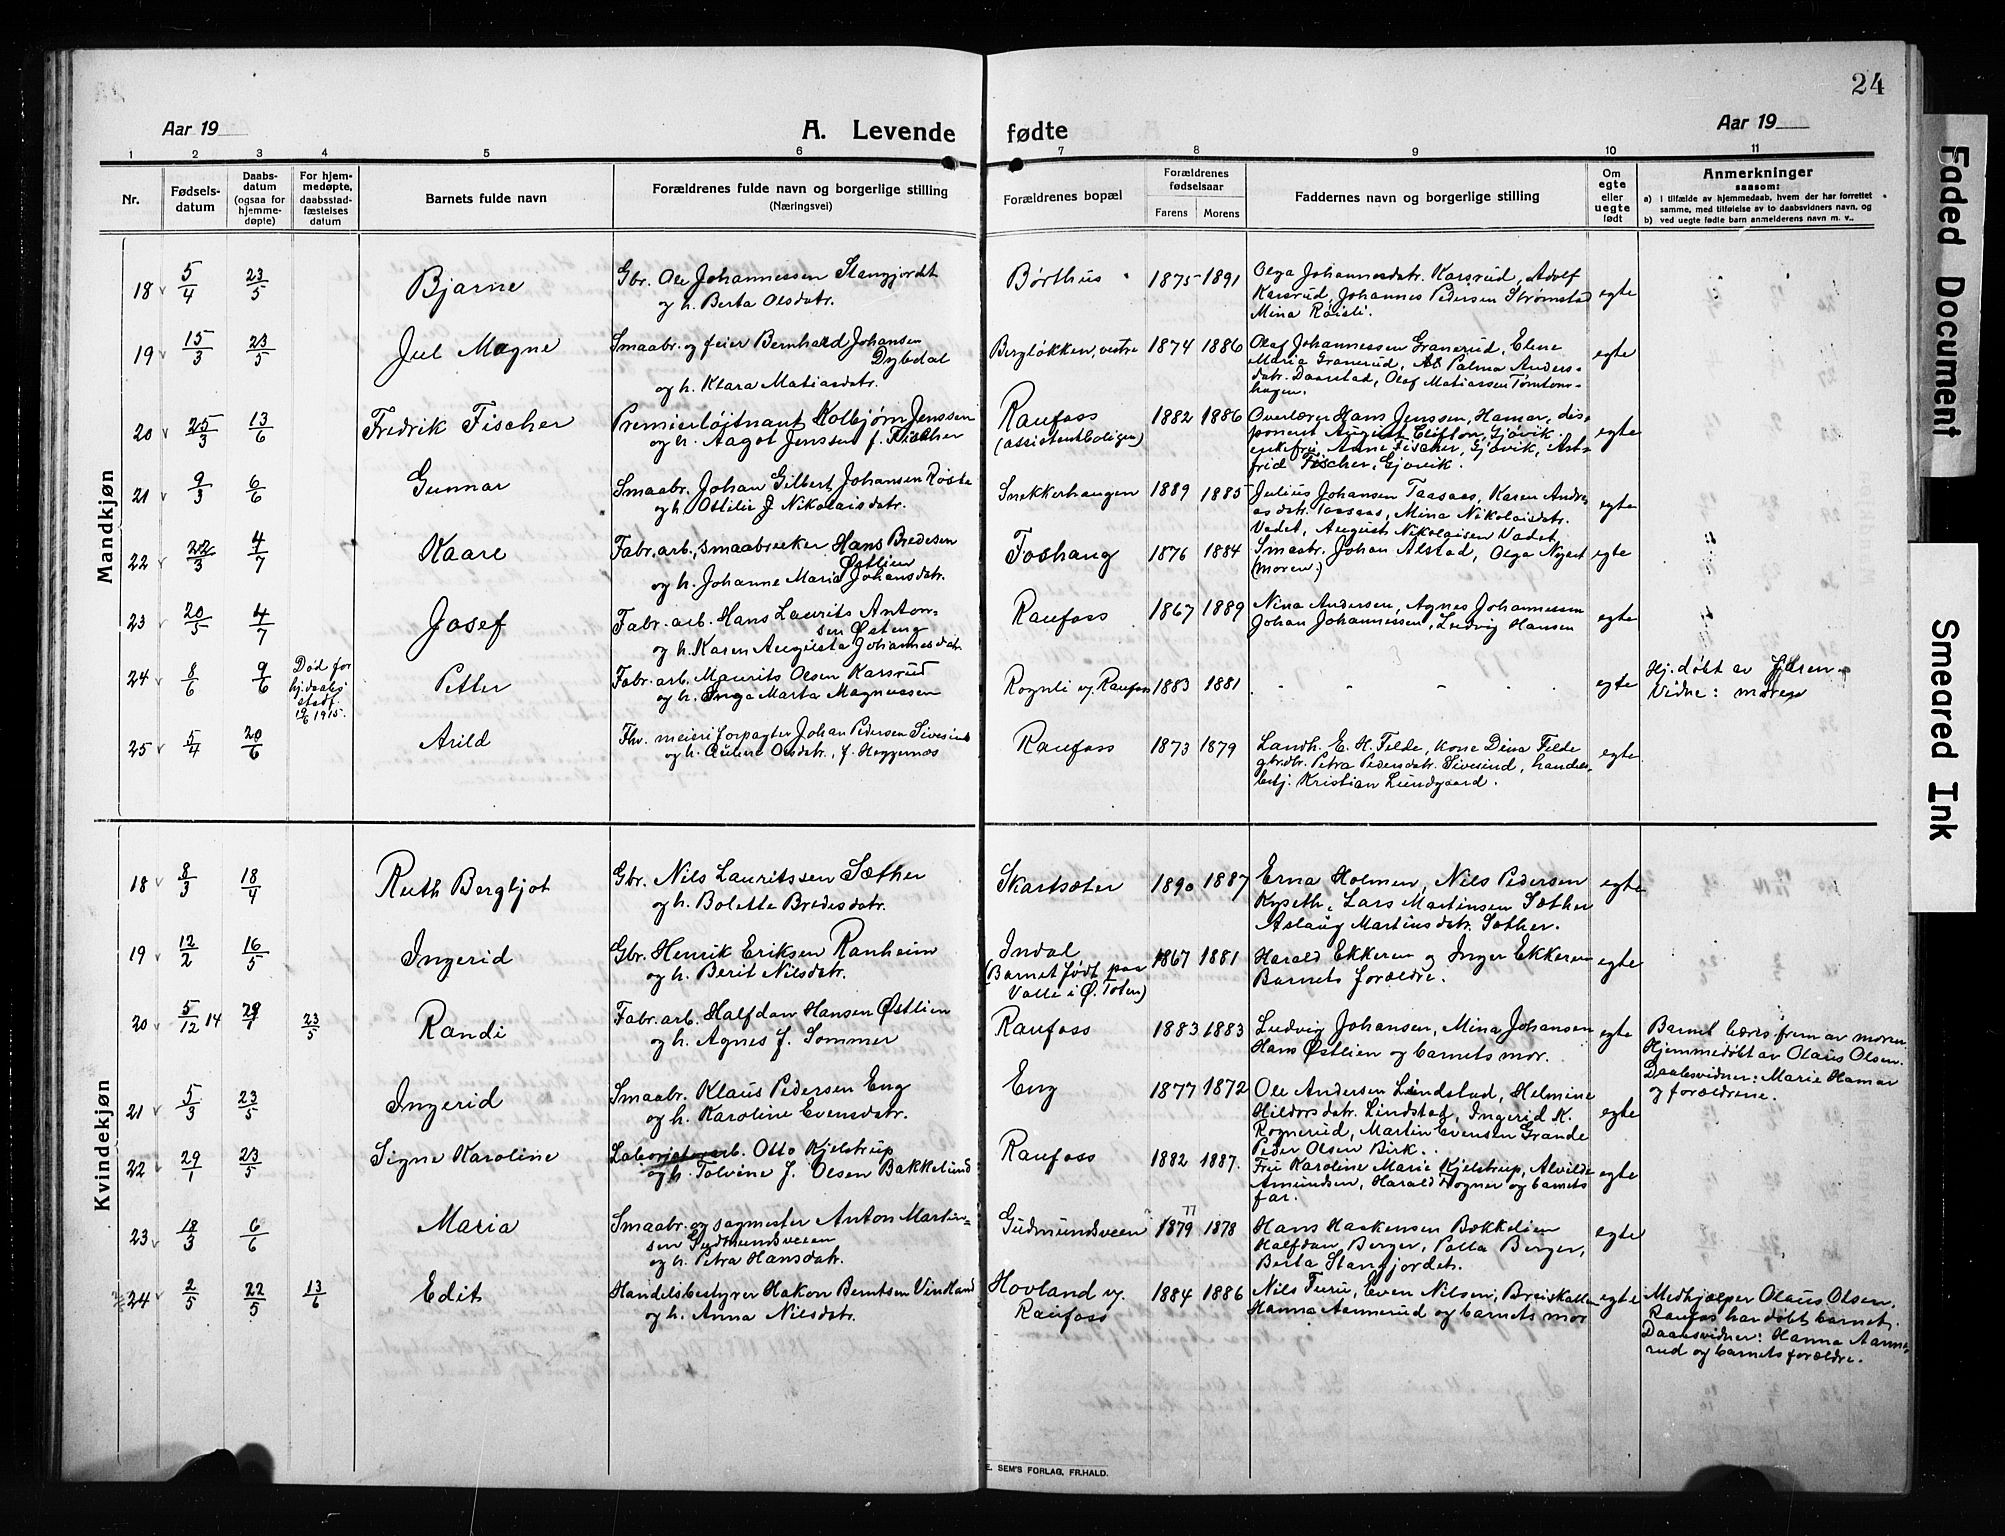 24
Aar 19
A. Levende fødte
Aar 19
1 2 3 4 5 6 7 8 9 10 11
Nr.
Fødsels-
datum
Daabs-
datum
(ogsaa for
hjemme-
døpte)
For hjem-
medøpte,
daabsstad-
fæstelses
datum
Barnets fulde navn
Forældrenes fulde navn og borgerlige stilling
(Næringsvei)
Forældrenes bopæl
Forældrenes
fødselsaar
Farens Morens
Faddernes navn og borgerlige stilling
Om
egte
eller
uegte
født
Anmerkninger
saasom:
a) i tilfælde av hjemmedaab, hvem der har forrettet
samme, med tilføielse av to daabsvidners navn, og
b) ved uegte fødte barn anmelderens navn m. v..
Mandkjøn
18 5/4 23/5 Bjarne
Gbr. Ole Johannessen Stangjordet
og h. Berta Olsdatr.
Børthus 1875 1891
Olga Johannesdatr. Karsrud, Adolf
Karsrud, Johannes Pedersen Strømstad
Mina Røisli.
egte
19 15/3 23/5 Jul Magne
Smaabr. og feier Bernhard Johansen
Dybedal
og h. Klara Matiasdatr.
Bergløkken, vestre 1874 1886
Olaf Johannessen Granerud, Elene
Maria Granerud, Palma Anders-
datr. Daarstad, Olaf Matiassen Tømtom-
hagen.
egte
20 25/3 13/6 Fredrik Fischer
Premierløjtnant Kolbjørn Jenssen
og h. Aagot Jenssen f. Fischer
Raufoss
(assistentboligen)
1882 1886
Overlærer Hans Jenssen, Hamar, dis-
ponent August Clifton, Gjøvik.
enkefru Anne Fischer, Gjøvik, Ast-
frid Fischer, Gjøvik.
egte
21 9/3 6/6 Gunnar
Smaabr. Johan Gilbert Johansen Røste
og h. Ottilie J Nikolaisdatr.
Snekkerhaugen 1889 1885
Julius Johansen Taasaas, Karen Andre-
asdatr. Taasaas, Mina Nikolaisdatr.
Vadet, August Nikolaisen Vadet,
egte
22 22/3 4/7 Kaare
Fabr. arb., smaabruker Hans Bredesen
Østlien
og h. Johanne Maria Johansdatr.
Foshaug 1876 1884
Smaabr. Johan Alstad, Olga Nyset
(moren.)
egte
23 20/5 4/7 Josef
Fabr. arb. Hans Laurits Anton-
sen Østeng
og h. Karen Augusta Johannesdatr.
Raufoss 1867 1889
Nina Andersen, Agnes Johannessen
Johan Johannessen, Ludvig Hansen
egte
24 8/6 9/6
Død før
hj.daabs
stadf.
19/6 1915.
Petter
Fabr. arb. Maurits Olsen Karsrud
og h. Inga Marta Magnussen
Rognli og Raufoss 1883 1881
egte
Hj. døbt av
Vidne: moren
25 5/4 20/6 Arild
Fhv. meieriforpagter Johan Pedersen Sivesind
og h. Oline Olsdatr., f. Heggernes
Raufoss 1873 1879
Landh. E. H. Felde, kone Dina Felde
gbr.dtr. Petra Pedersdatr. Sivesind, handels-
betj. Kristian Lundgaard.
egte
Kvindekjøn
18 8/3 18/4 Ruth Bergljot
Gbr. Nils Lauritssen Sæther
og h. Bolette Bredesdatr.
Skartsæter 1890 1887
Erna Holmen, Nils Pedersen
Kyseth, Lars Martinsen Sæther
Aslaug Martinsdatr. Sæther.
egte
19 12/2 16/5 Ingerid
Gbr. Henrik Eriksen Ranheim
og h. Berit Nilsdatr.
Indal
(Barnet født paa
Valle i Ø. Toten)
1867 1881
Harald Ekkeren og Inger Ekkeren
Barnets forældre.
egte
20 5/12 14 29/1 23/5 Randi
Fabr. arb. Halfdan Hansen Østlien
og h. Agnes f. Sommer
Raufoss 1883 1883
Ludvig Johansen, Mina Johansen
Hans Østlien og barnets mor.
egte
Barnet bæres frem av moren
Hjemmedøbt av Olaus Olsen.
Daabsvidner: Marie Hamar
og forældrene.
21 5/3 23/5 Ingerid
Smaabr. Klaus Pedersen Eng
og h. Karoline Evensdatr.
Eng 1877 1872
Ole Andersen Lindstad, Helmine
Hildorsdatr. Lindstad, Ingerid K.
Rognerud, Martin Evensen Grande
Peder Olsen Birk.
egte
22 29/1 23/5 Signe Karoline
Laboriatorarb. Otto Kjelstrup
og h. Tolvine f. Olsen Bakkelund
Raufoss 1882 1887.
Fru Karoline Marie Kjelstrup, Alvilde
Amundsen, Harald Wogner og barnets
far.
egte
23 18/3 6/6 Maria
Smaabr. og sagmester Anton Martin-
sen Gudmundsveen
og h. Petra Hansdatr.
Gudmundsveen 1879 77 1878
Hans Haakensen Bækkelien
Halfdan Berger, Palla Berger,
Berta Stangjordet.
egte
24 2/5 22/5 13/6 Edit
Handelsbestyrer Hakon Berntsen Vindland
og h. Anna Nilsdatr.
Hovland og
Raufoss
1884 1886
Nils Furu, Even Nilsen, Breiskallen
Hanna Aannerud og barnets mor
egte
Medhjælper Olaus Olsen,
Raufoss har døbt barnet.
Daabsvidner: Hanna Aanne-
rud og barnets forældre.
E. SEM'S FORLAG, FR.HALD.
Faded Document
Smeared Ink